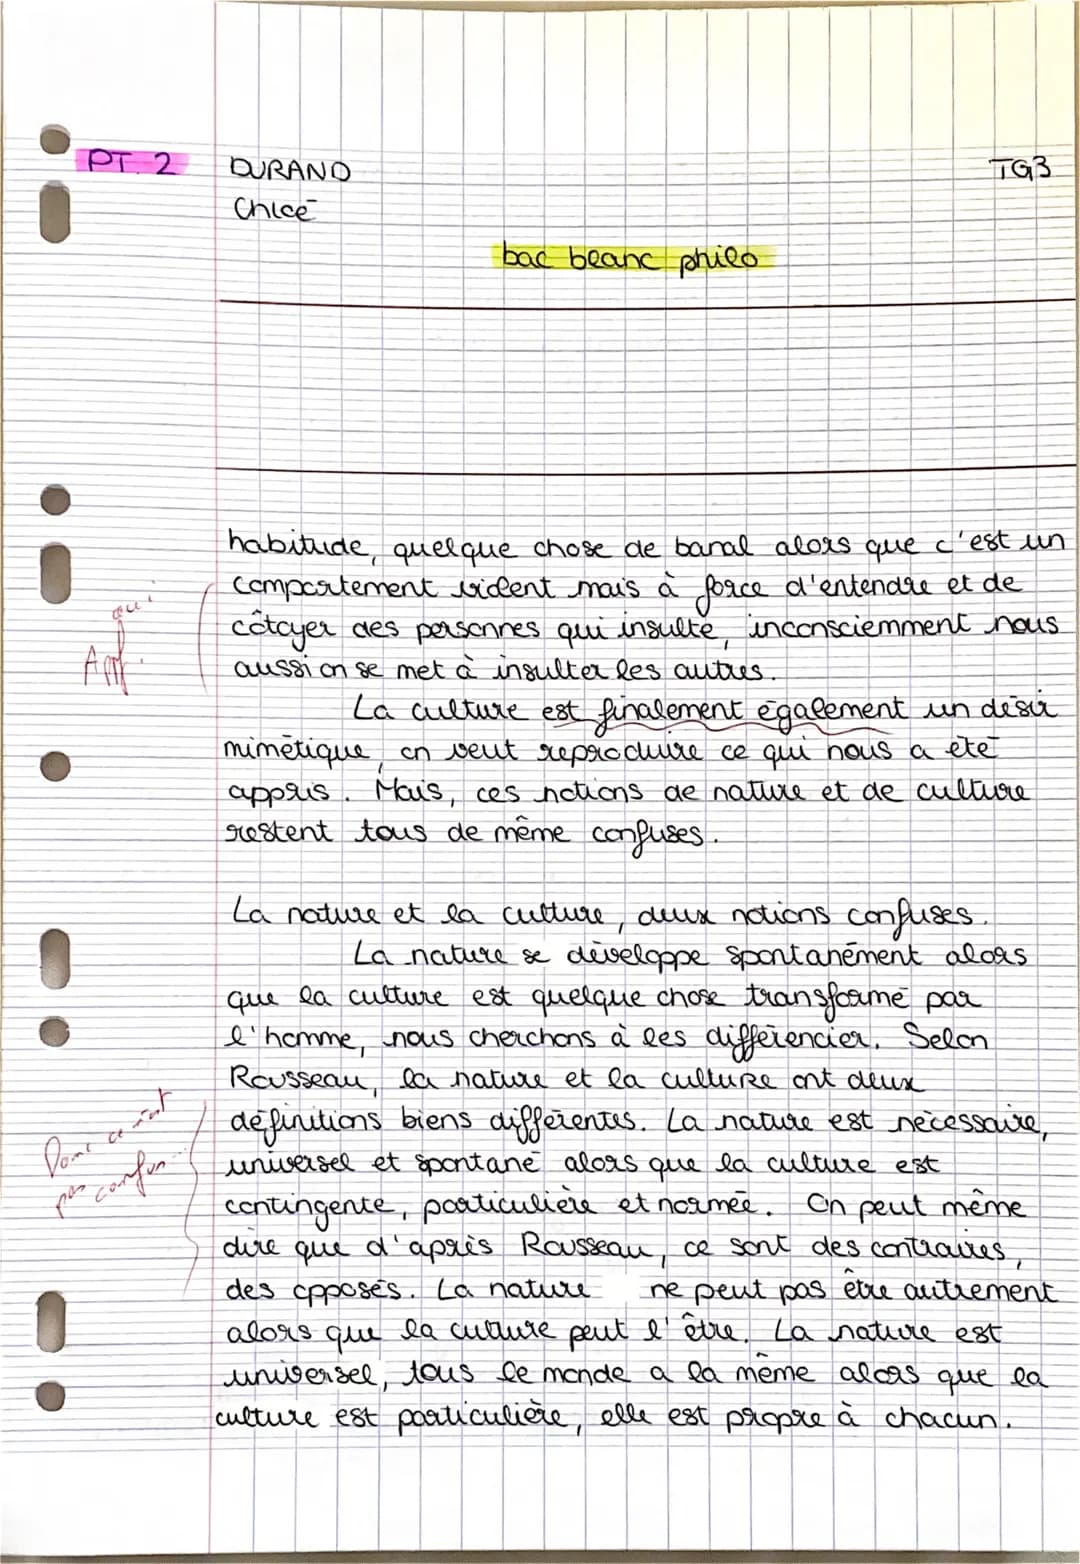 PT. 2
DURAND
TG3
Chloé
bac blanc philo
habitude, quelque chose de banal alors que c'est un
comportement violent mais à force d'entendre et de
côtoyer des personnes qui insulte, inconsciemment nous
aussi on se met à insulter les autres.
oui
App.
La culture est finalement également un désir
mimétique, on veut reproduire ce qui nous a été
appris. Mais, ces notions de nature et de culture
restent tous de même confuses.
La nature et la culture, deux notions confuses.
La nature se développe spontanément alors
que la culture est quelque chose transformé par
l'homme, nous cherchons à les différencier. Selon
Rousseau, la nature et la culture ont deux
définitions biens différentes. La nature est nécessaire,
universel et spontané alors que la culture est
contingente, particulière et normée. On peut même
dire que d'après Rousseau, ce sont des contraires,
des opposés. La nature ne peut pas être autrement
alors que la culture peut l'être. La nature est
universel, tous le monde a la même alors que la
culture est particulière, elle est propre à chacun.
Donc ce n'est
pas confus...